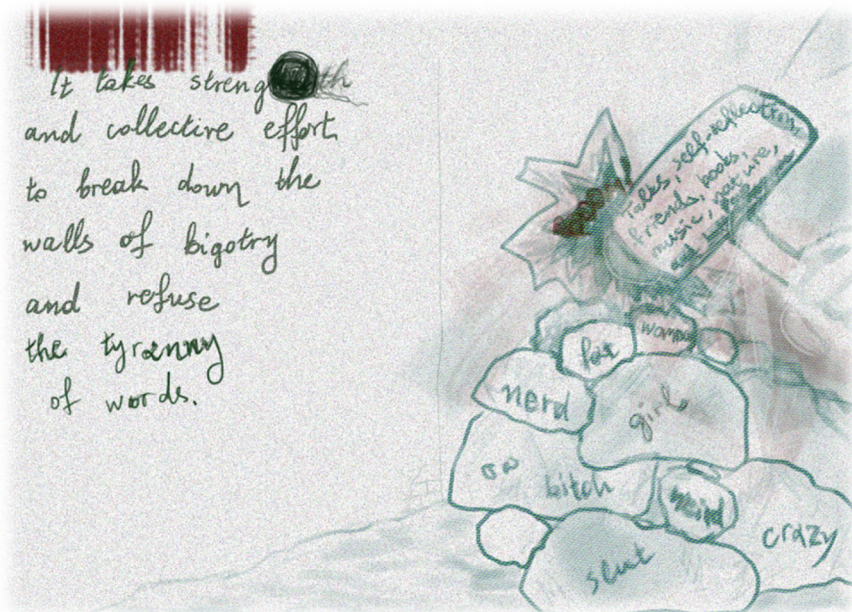 It takes strength
and collective effort
to break down the
walls of bigotry
and refuse
the tyranny
of words.
Talks, self-reflection,
friends, books,
music, nature,
and
fat
woman
nerd
girl
bitch
weird
crazy
slut